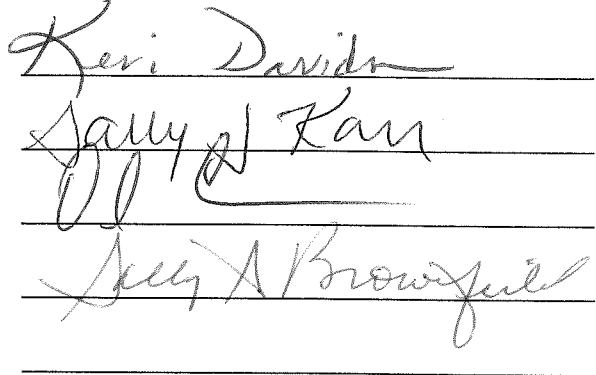 Keri Davidson
Sally A Karr
Sally A Brownfield